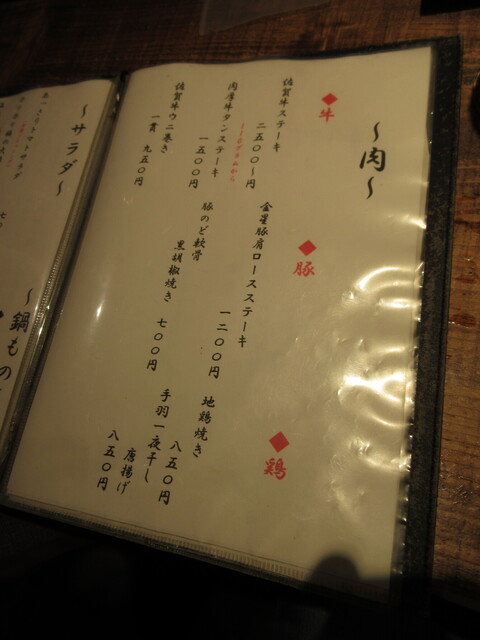 ～肉～
◆牛
佐賀牛ステーキ
二五〇〇～円
肉厚牛タンステーキ
一五〇〇円
佐賀牛ウニ巻き
一貫 九五〇円
◆豚
金星豚肩ロースステーキ
一二〇〇円
豚のど軟骨
黒胡椒焼き 七〇〇円
◆鶏
地鶏焼き
八五〇円
手羽一夜干し
唐揚げ
八五〇円
～サラダ～
～鍋もの